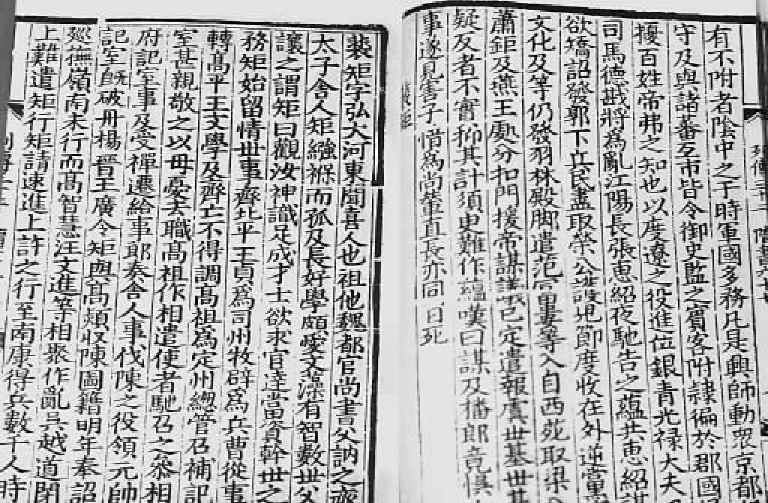 有不附者陰中之于時軍國多務凡是興師動衆京都
守及與諸蕃互市皆令御史監之賓客附隷徧於郡國
擾百姓帝弗之知也以度遼之役進位銀青光禄大夫
司馬德戡將爲亂江陽長張惠紹夜馳告之蘊共惠紹
欲矯詔發郭下兵民盡取榮公護兒節度收在外逆黨
文化及等仍發羽林殿脚遣范富婁等入自西苑取梁公
蕭鉅及燕王處分扣門援帝謀議已定遣報虞世基世基
疑反者不實抑其計須臾難作蘊嘆曰謀及播郎竟悞
事遂見害子愔爲尚輦直長亦同日死
裴矩
裴矩字弘大河東聞喜人也祖他魏都官尚書父訥之齊
太子舍人矩繈褓而孤及長好學頗愛文藻有智數世父
讓之謂矩曰觀汝神識足成才士欲求官達當資幹世之
務矩始留情世事齊北平王貞爲司州牧辟爲兵曹從事
轉高平王文學及齊亡不得調高祖爲定州總管召補記
室甚親敬之以母憂去職高祖作相遣使者馳召之參相
府記室事及受禪遷給事郎奏舍人事伐陳之役領元帥
記室旣破丹楊晉王廣令矩與高熲収陳圖籍明年奉詔
廵撫嶺南未行而高智慧汪文進等相聚作亂吳越道閉
上難遣矩行矩請速進上許之行至南康得兵數千人時